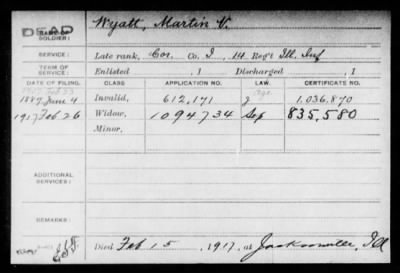 DEAD
NAME OF SOLDIER: Wyatt, Martin V.
SERVICE: Late rank, Cor. Co. I, 14 Reg't Ill. Inf
TERM OF SERVICE: Enlisted , 1 Discharged , 1
DATE OF FILING. CLASS APPLICATION NO. LAW CERTIFICATE NO.
1887 June 4 Invalid, 612,171 J 1,036,870
1917 Feb 26 Widow, 1094734 Sep 835,580
Minor,
ADDITIONAL SERVICES:
REMARKS:
Died Feb 15, 1917, at Jacksonville, Ill